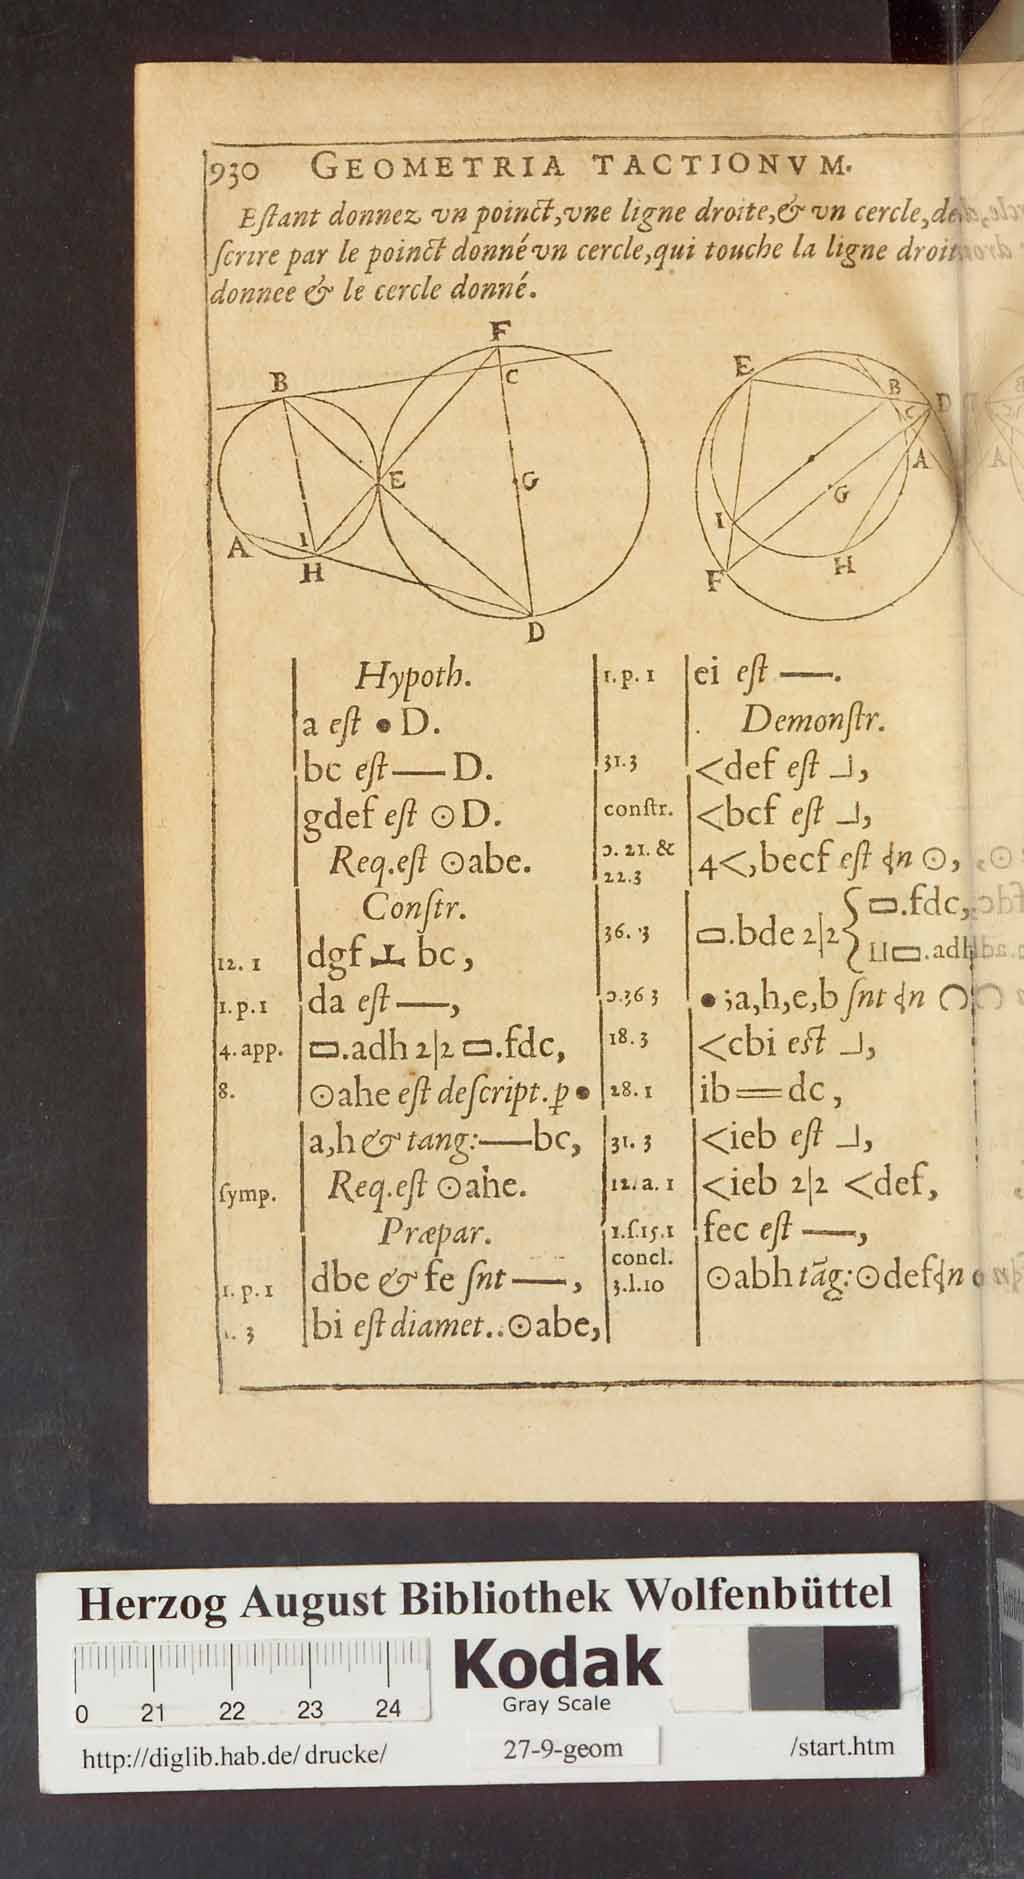 930 GEOMETRIA TACTIONVM.
Eſtant donnez vn poinct, vne ligne droite, & vn cercle, de-
ſcrire par le poinct donné vn cercle, qui touche la ligne droite
donnee & le cercle donné.
F
B C
E G
A I
H
D
E B
C D
A
G
I
F H
Hypoth.
a eſt • D.
bc eſt — D.
gdef eſt ⊙ D.
Req. eſt ⊙abe.
Conſtr.
12. 1 dgf ⊥ bc,
1. p. 1 da eſt —,
4. app. ▭.adh 2|2 ▭.fdc,
8. ⊙ahe eſt deſcript. p •
a,h & tang: — bc,
ſymp. Req. eſt ⊙ahe.
Præpar.
1. p. 1 dbe & fe ſnt —,
1. 3 bi eſt diamet.. ⊙abe,
1. p. 1 ei eſt —.
Demonſtr.
31. 3 <def eſt ⅃,
conſtr. <bcf eſt ⅃,
ɔ. 21. &
22. 3 4<, becf eſt ⟨n ⊙,
36. 3 ▭.bde 2|2 { ▭.fdc,
⊔ ▭.adh
ɔ. 36 3 • ;a,h,e,b ſnt ⟨n
18. 3 <cbi eſt ⅃,
28. 1 ib = dc,
31. 3 <ieb eſt ⅃,
12. a. 1 <ieb 2|2 <def,
1. ſ. 15. 1 fec eſt —,
concl.
3. l. 10 ⊙abh tãg: ⊙def ⟨n
Herzog August Bibliothek Wolfenbüttel
Kodak
Gray Scale
0 21 22 23 24
http://diglib.hab.de/drucke/ 27-9-geom /start.htm